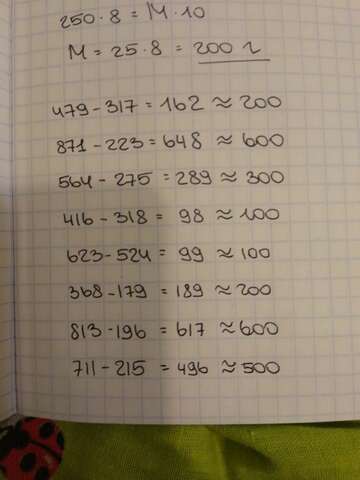 250 · 8 = M · 10
M = 25 · 8 = 200 г
479 - 317 = 162 ≈ 200
871 - 223 = 648 ≈ 600
564 - 275 = 289 ≈ 300
416 - 318 = 98 ≈ 100
623 - 524 = 99 ≈ 100
368 - 179 = 189 ≈ 200
813 - 196 = 617 ≈ 600
711 - 215 = 496 ≈ 500